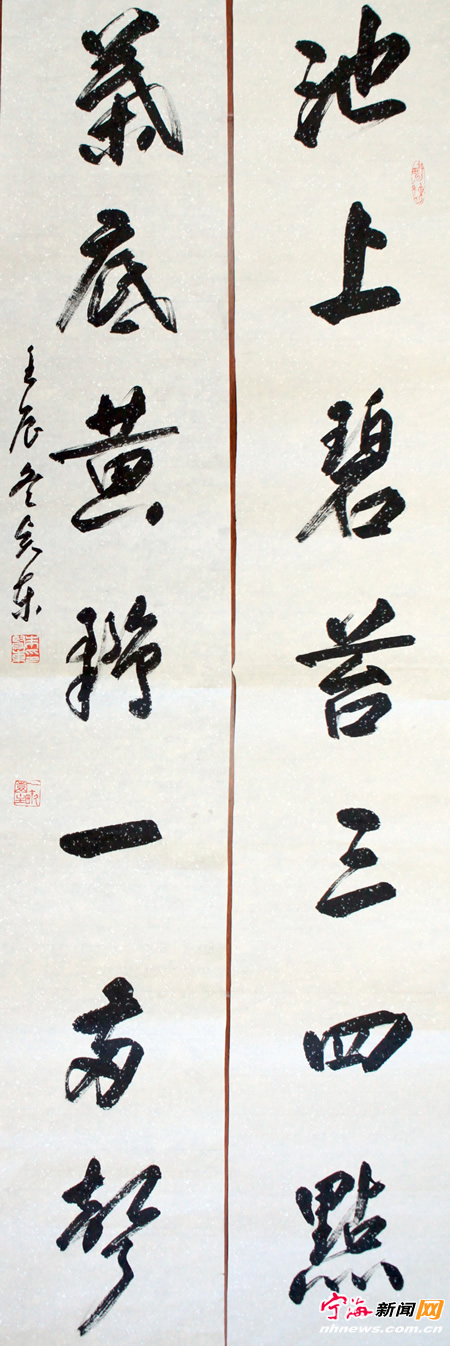 池上碧苔三四點
葉底黃鸝一兩聲
壬辰冬
宁海新闻网
nhnews.com.cn